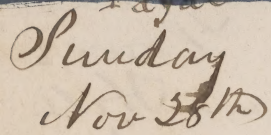 Sunday
Nov 28th